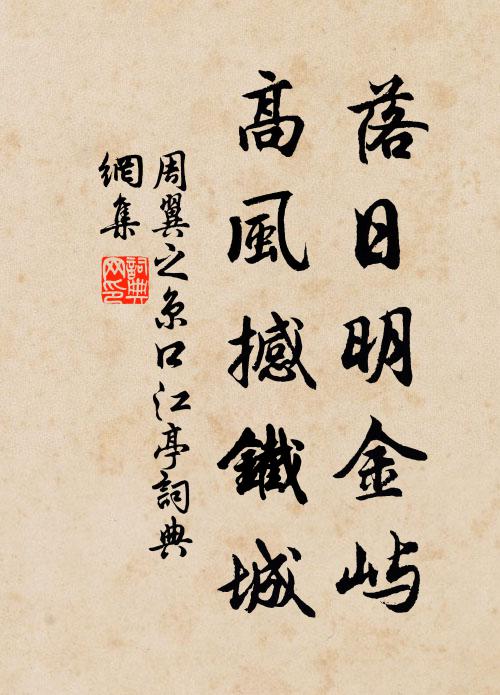 落日明金屿
高風撼鐵城
周翼之京口江亭詞典
網集
詞典
网印